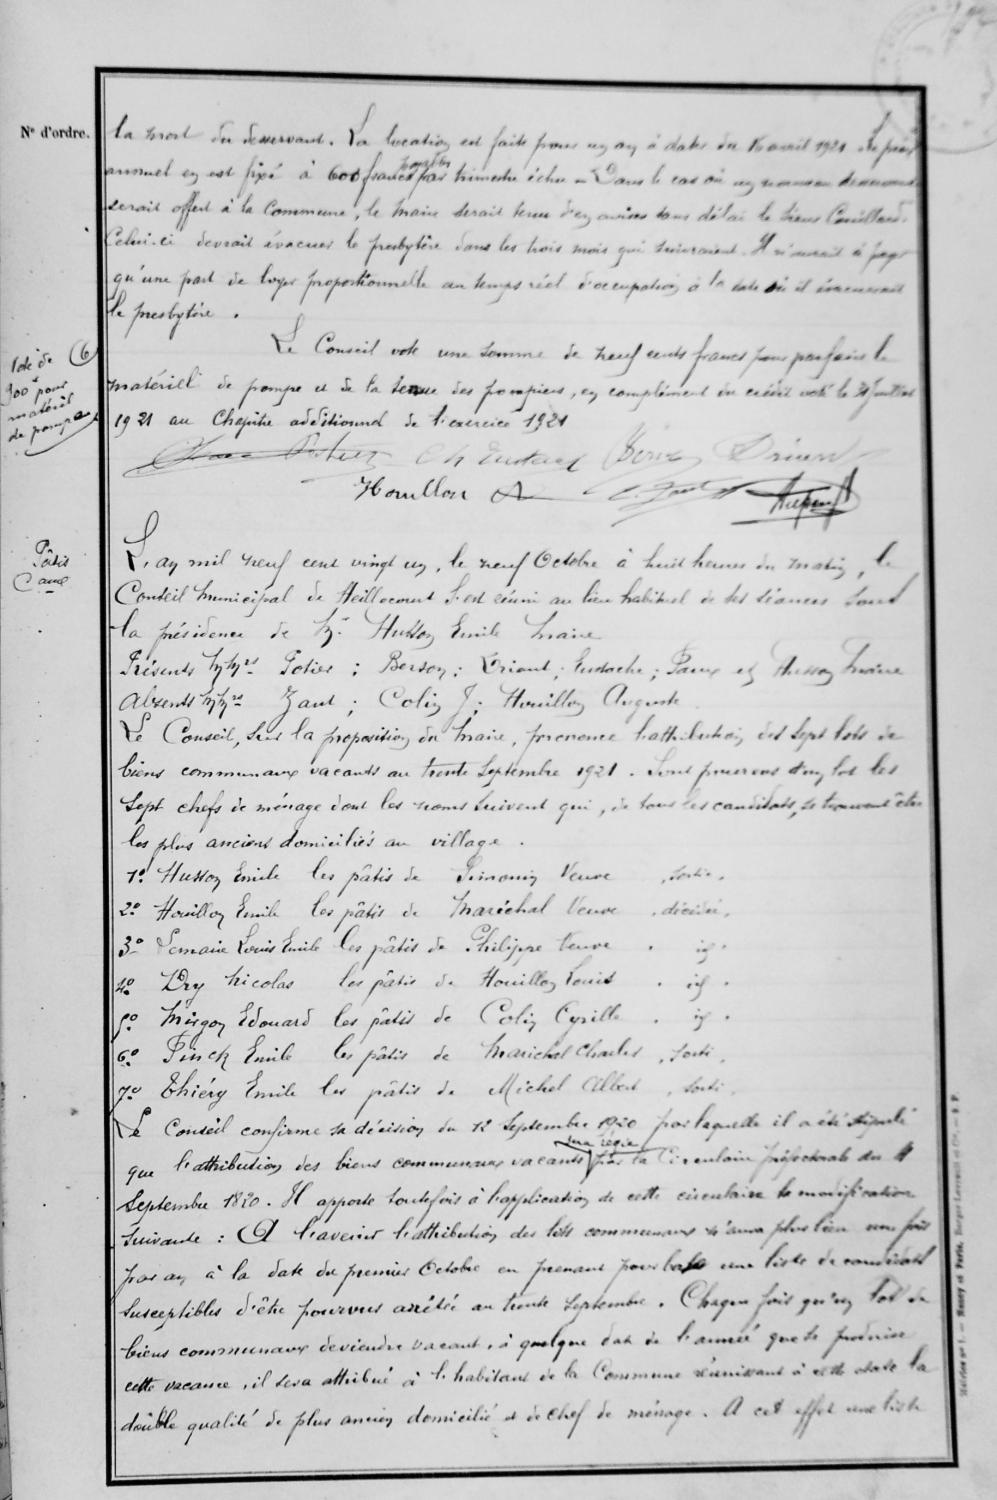 N° d'ordre.
la mort du desservant. La location est faite pour un an à dater du 15 avril 1921. Le prix
annuel en est fixé à 600 francs payables par trimestre échu. Dans le cas où un nouveau desservant
serait offert à la Commune, le Maire serait tenu d'en aviser sans délai le sieur
Celui-ci devrait évacuer le presbytère dans les trois mois qui suivraient. Il n'aurait à payer
qu'une part de loyer proportionnelle au temps réel d'occupation à la date où il évacuerait
le presbytère.
Vote de 6
900f pour
matériel
de pompe
Le Conseil vote une somme de neuf cents francs pour parfaire le
matériel de pompe et de la tenue des pompiers, en complément du crédit voté le Juillet
1921 au Chapitre additionnel de l'exercice 1921
Ch Eustache
Houillon
Pâtis
L'an mil neuf cent vingt un, le neuf Octobre à huit heures du matin, le
Conseil Municipal de Heillecourt s'est réuni au lieu habituel de ses séances sous
la présidence de Mr. Husson Emile Maire
Présents MMrs Potier ; Berson ; Driant ; Eustache ; et Husson Maire
Absents MMrs Zant ; Colin J ; Houillon Auguste
Le Conseil, sur la proposition du Maire, prononce l'attribution des sept lots de
biens communaux vacants au trente Septembre 1921. Sont pourvus d'un lot les
sept chefs de ménage dont les noms suivent qui, de tous les candidats, se trouvent être
les plus anciens domiciliés au village.
1° Husson Emile les pâtis de Simonin Veuve , sortie.
2° Houillon Emile les pâtis de Maréchal Veuve . décédée.
3° Lemaire Louis Emile les pâtis de Philippe Veuve . id.
4° Dry Nicolas les pâtis de Houillon Louis . id.
5° Mirgon Edouard les pâtis de Colin Cyrille . id.
6° Pinck Emile les pâtis de Maréchal Charles , sorti.
7° Thiéry Emile les pâtis de Michel Albert , sorti.
Le Conseil confirme sa décision du 12 Septembre 1920 par laquelle il a été stipulé
que l'attribution des biens communaux vacants sera régie par la Circulaire préfectorale du
Septembre 1820. Il apporte toutefois à l'application de cette circulaire la modification
suivante : A l'avenir l'attribution des lots communaux n'aura plus lieu une fois
par an à la date du premier Octobre en prenant pour base une liste de candidats
susceptibles d'être pourvus arrêtée au trente Septembre. Chaque fois qu'un lot de
biens communaux deviendra vacant, à quelque date de l'année que se produise
cette vacance, il sera attribué à l'habitant de la Commune réunissant à cette date la
double qualité de plus ancien domicilié et de chef de ménage. A cet effet une liste